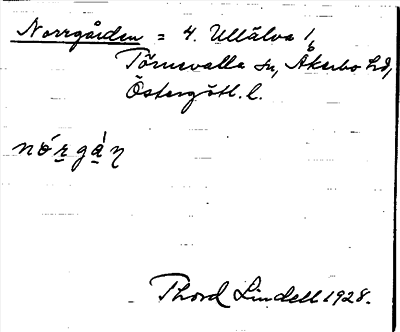 Norrgården = 4. Ullälva 1,
6
Törnevalla sn, Åkerbo hd,
Östergötl. l.
nó̱rgá̱ṇ
Thord Lindell 1928.